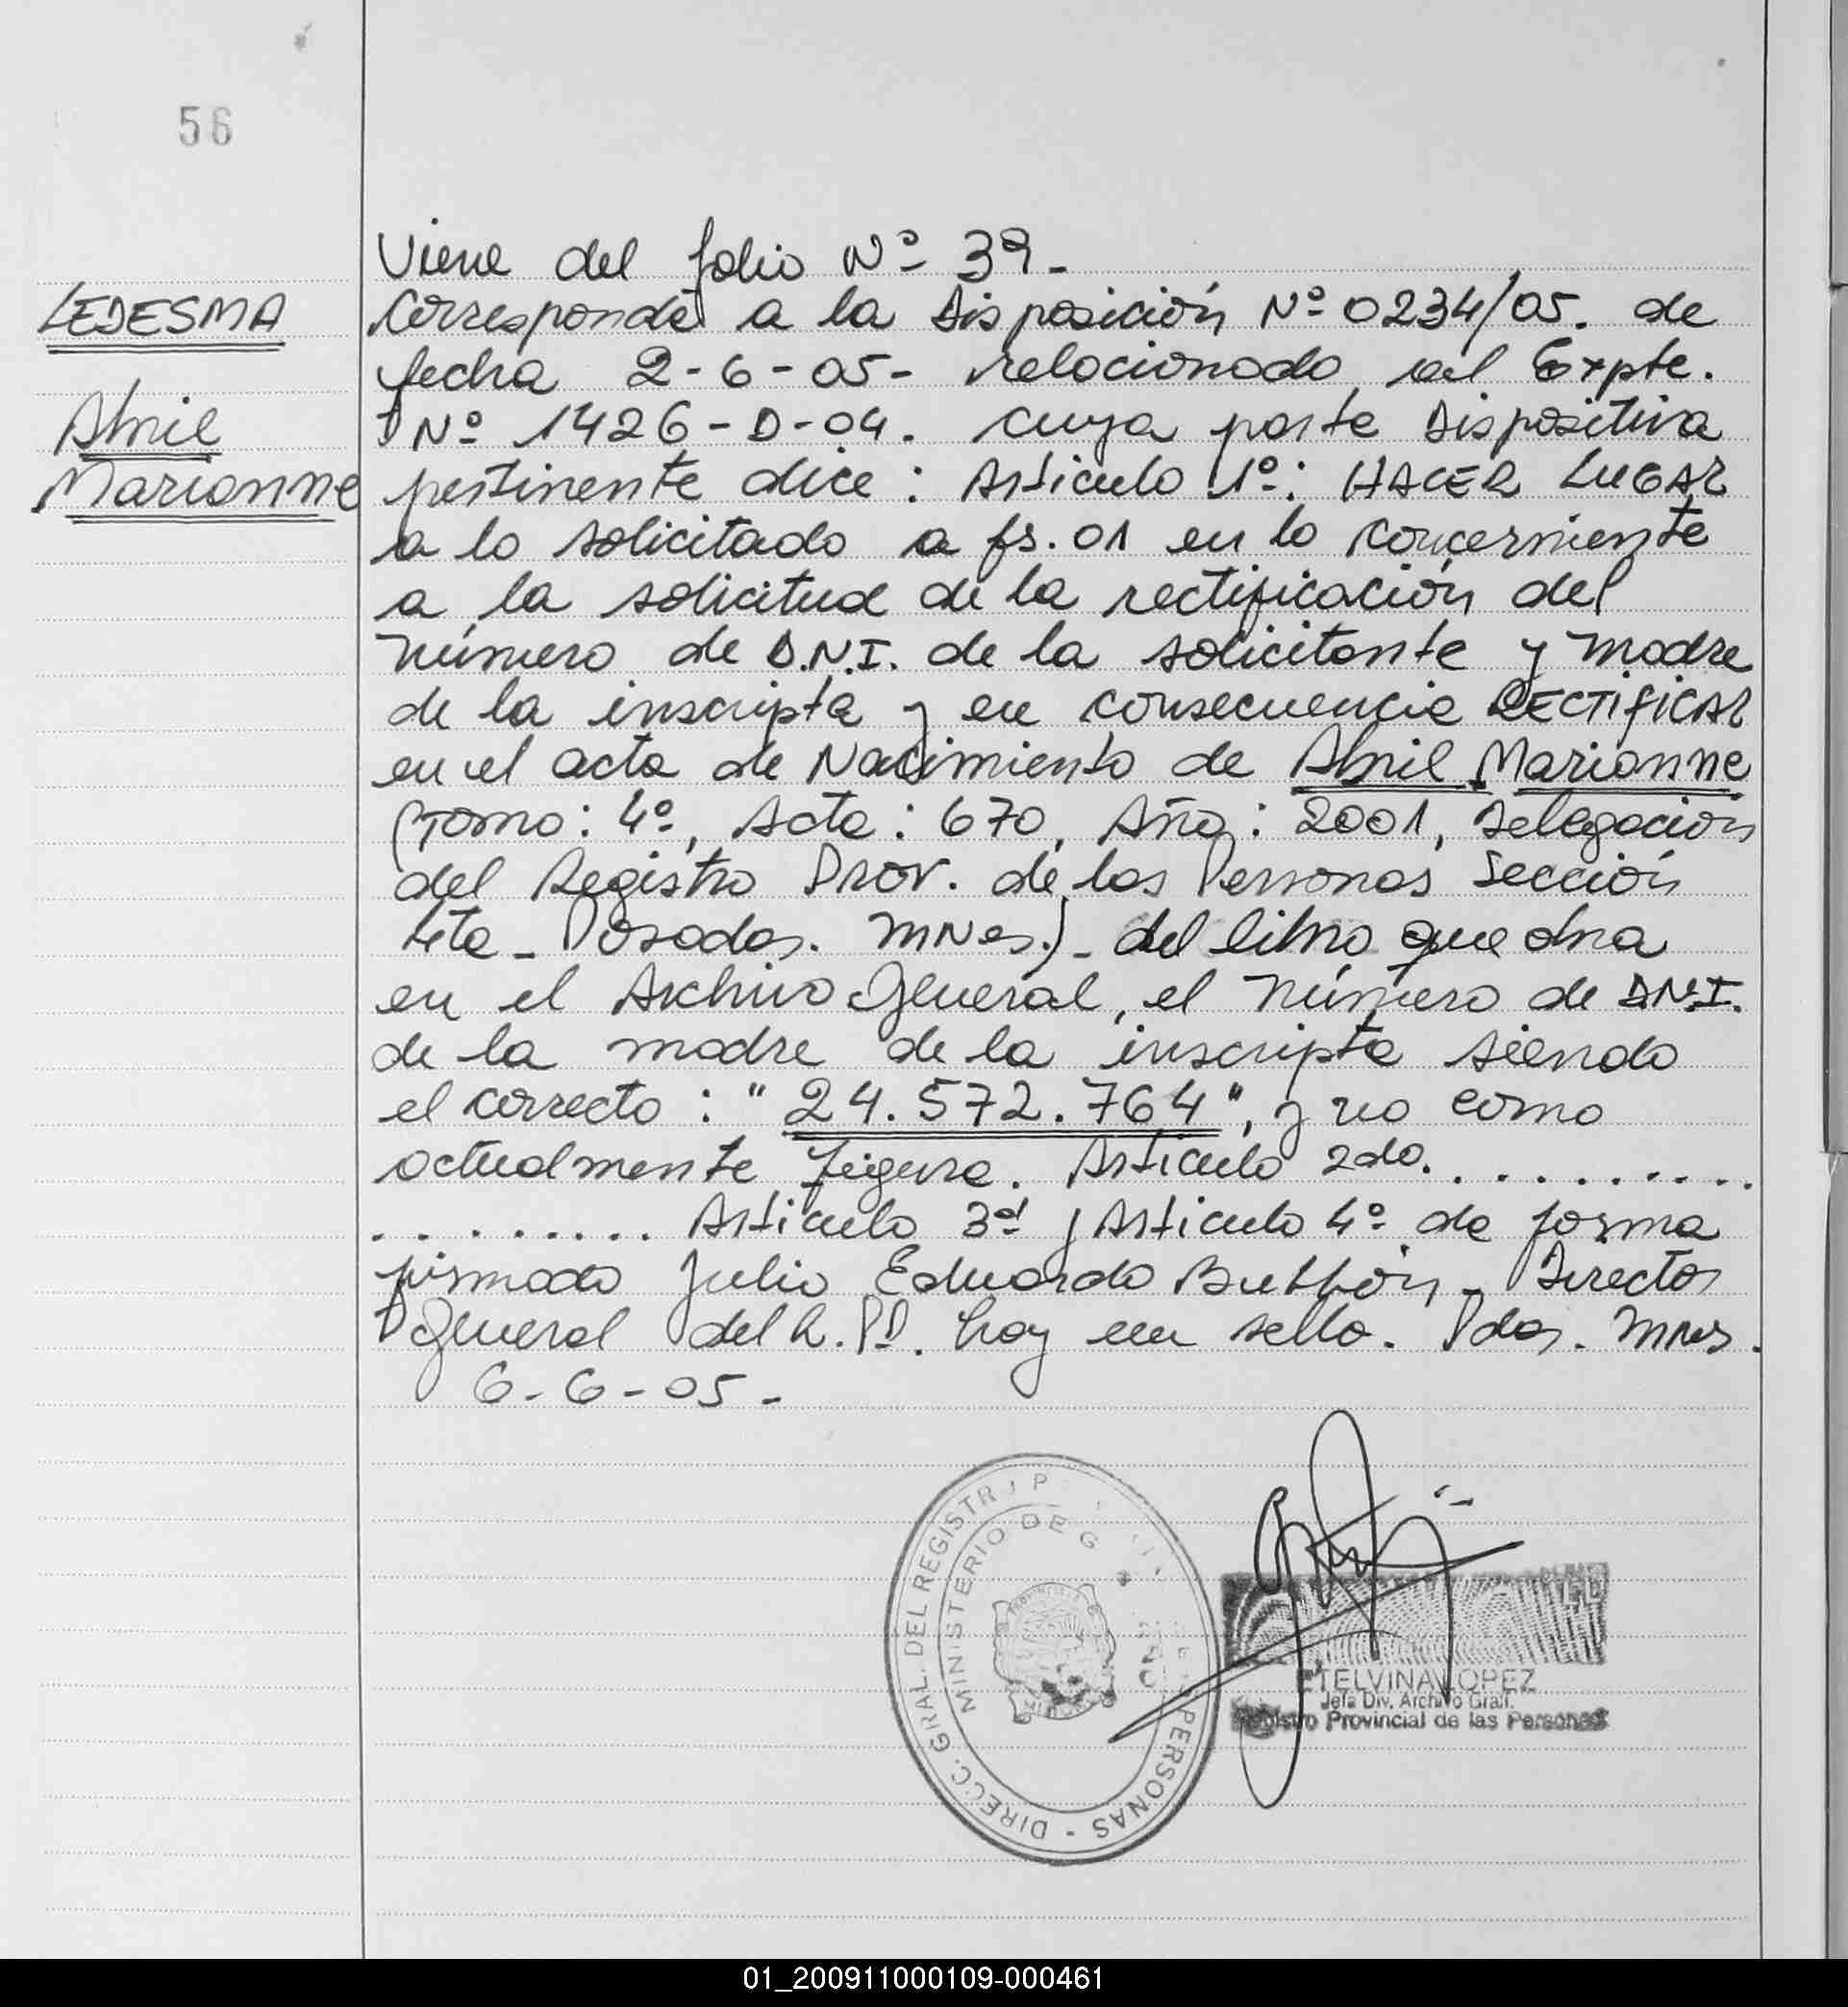 56
LEDESMA
Abril
Marionne
Viene del folio Nº 39-
Corresponde a la Disposición Nº 0234/05. de
fecha 2-6-05- relacionado al Expte.
Nº 1426-D-04. cuya parte Dispositiva
pertinente dice: Artículo 1º: HACER LUGAR
a lo solicitado a fs. 01 en lo concerniente
a la solicitud de la rectificación del
número de D.N.I. de la solicitante y madre
de la inscripta y en consecuencia RECTIFICAR
en el acta de Nacimiento de Abril Marionne
(Tomo: 4º, Acta: 670, Año: 2001, Delegación
del Registro Prov. de las Personas Sección
4ta - Posadas. MNes.)- del libro que obra
en el Archivo General, el número de DN.I.
de la madre de la inscripta siendo
el correcto: "24.572.764", y no como
actualmente figura. Artículo 2do. . . . . . . . . .
. . . . . . . . . Artículo 3º y Artículo 4º de forma
firmado Julio Eduardo Director
General del R.PP. hay un sello. Pdas. Mnes.
6-6-05-
DIRECC. GRAL. DEL REGISTR P PERSONAS -
MINISTERIO DE G
ETELVINA LOPEZ
Jefa Div. Archivo Gral.
Registro Provincial de las Personas
01_200911000109-000461